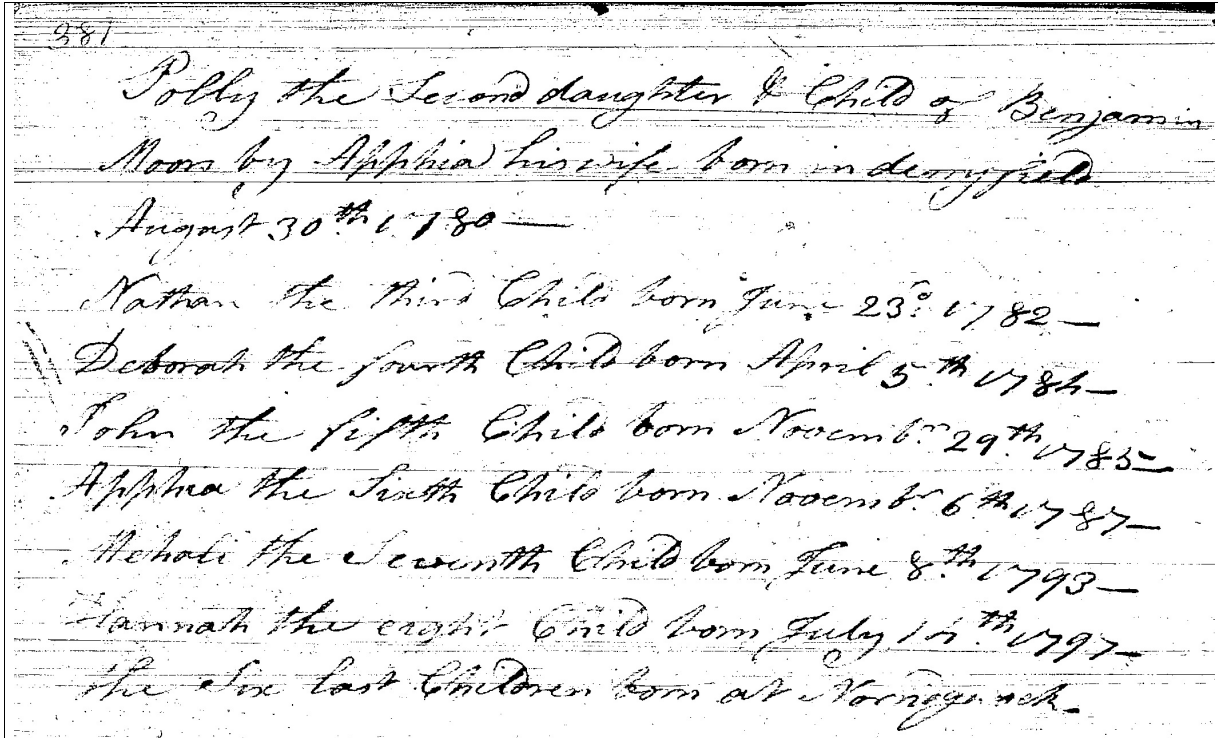 381
Polly the Second daughter & Child of Benjamin
Moors by Apphia his wife born in derryfield
August 30th 1780 —
Nathan the third Child born June 23d 1782 —
Deborah the fourth Child born April 5th 1784 —
John the fifth Child born Novembr 29th 1785 —
Apphia the Sixth Child born Novembr 6th 1787 —
the Seventh Child born June 8th 1793 —
Hannah the eight Child born July 14th 1797 —
the Six last Children born at